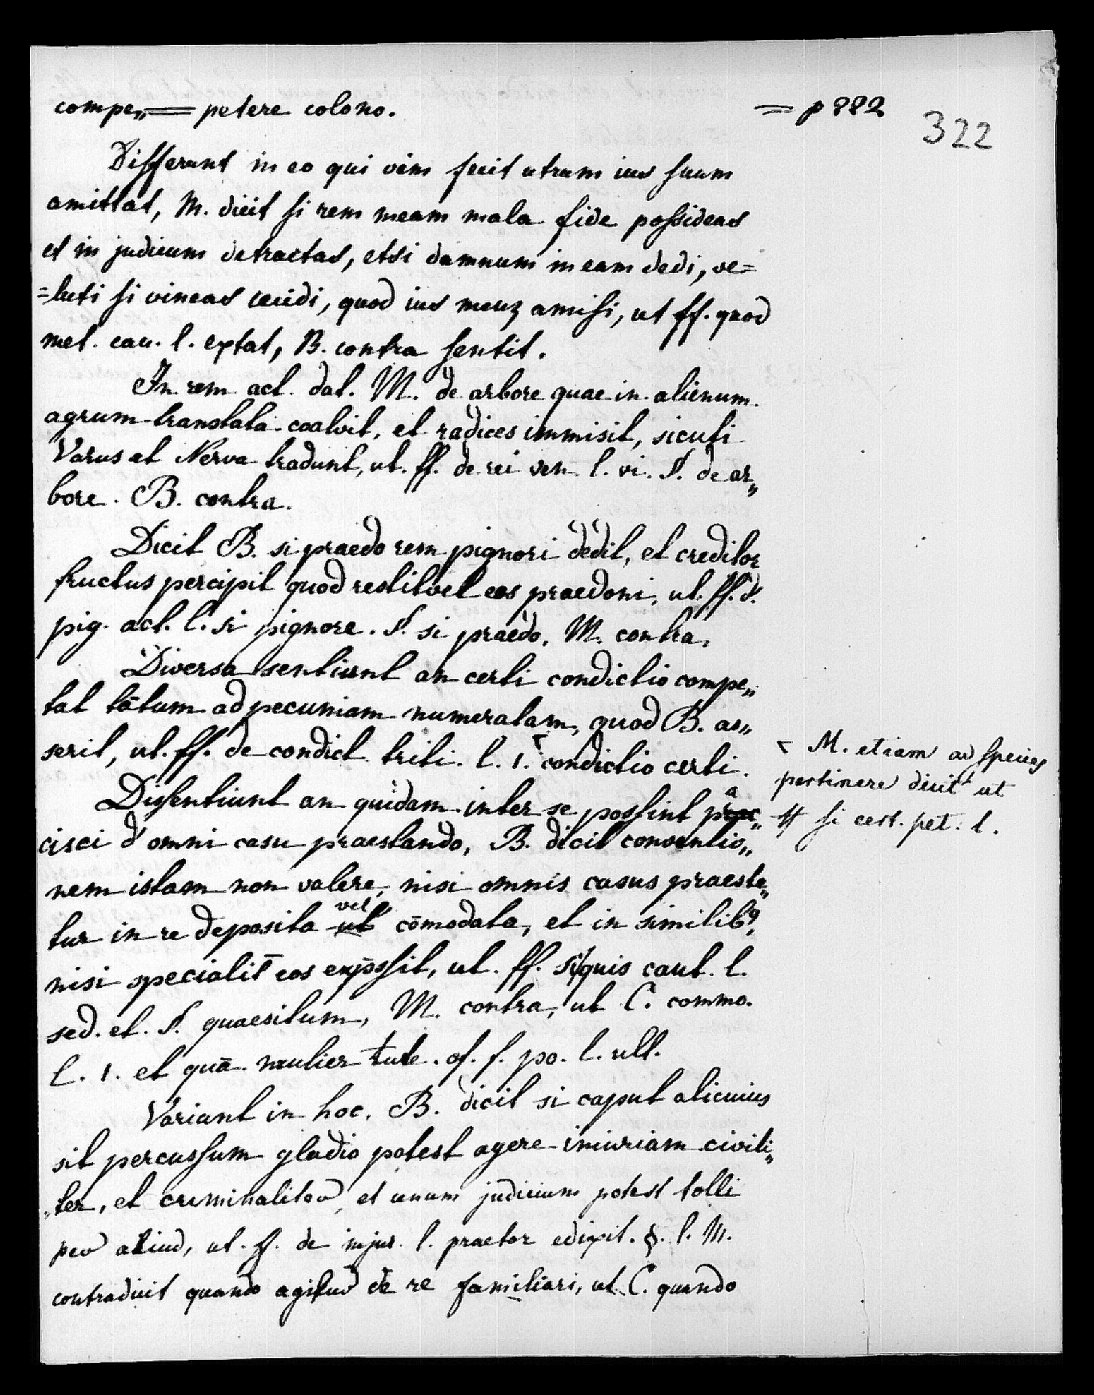 compe„== petere colono.
= p 882
322
Differunt in eo qui vim fecit utrum ius suum
amittat, M. dicit si rem meam mala fide possideas
et in judicium detractas, etsi damnum in eam dedi, ve=
=luti si vineas cecidi, quod ius meuz amisi, ut ff. quod
met. cau. l. extat, B. contra sentit.
In rem act. dat. M. de arbore quae in alienum
agrum translata coaluit, et radices immisit, sicuti
Varus et Nerva tradunt, ut. ff. de rei ven l. vi. §. de ar„
bore. B. contra.
Dicit B. si praedo rem pignori dedit, et creditor
fructus percipit quod restituet eos praedoni, ut. ff. d.
pig. act. l. si pignore. §. si praedo, M. contra.
Diversa sentiunt an certi condictio compe„
tat tātum ad pecuniam numeratam, quod B. as„
serit, ut. ff. de condict. triti. l. 1. condictio certi.
M. etiam ad species
pertinere dicit ut
ff si cert. pet. l.
Dissentiunt an quidam inter se possint pac„
cisci d' omni casu praestando, B. dicit conventio„
nem istam non valere, nisi omnis casus praeste„
tur in re deposita vel cōmodata, et in similib9,
nisi specialit̄ eos exp̄ssit, ut. ff. si quis caut. l.
sed. et. §. quaesitum, M. contra, ut C. commo.
l. 1. et quā. mulier tute. of. f. po. l. ult.
Variant in hoc. B. dicit si caput alicuius
sit percussum gladio potest agere iniuriam civili„
„ter, et criminaliter, et unum judicium potest tolli
per aliud, ut. ff. de injur. l. praetor edixit. §. l. M.
contradicit quando agitur de re familiari, ut C. quando